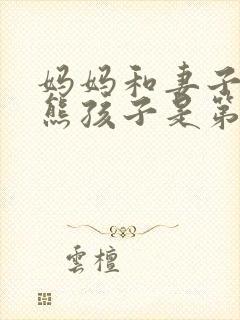 妈妈和妻子
熊孩子是第
雲檀